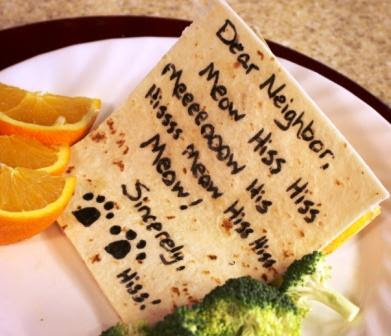 Dear Neighbor,
Meow Hiss Hiss
Meeeeooow His
Hissss Meow Hiss Hiss
Meow!
Sincerely,
Hiss!